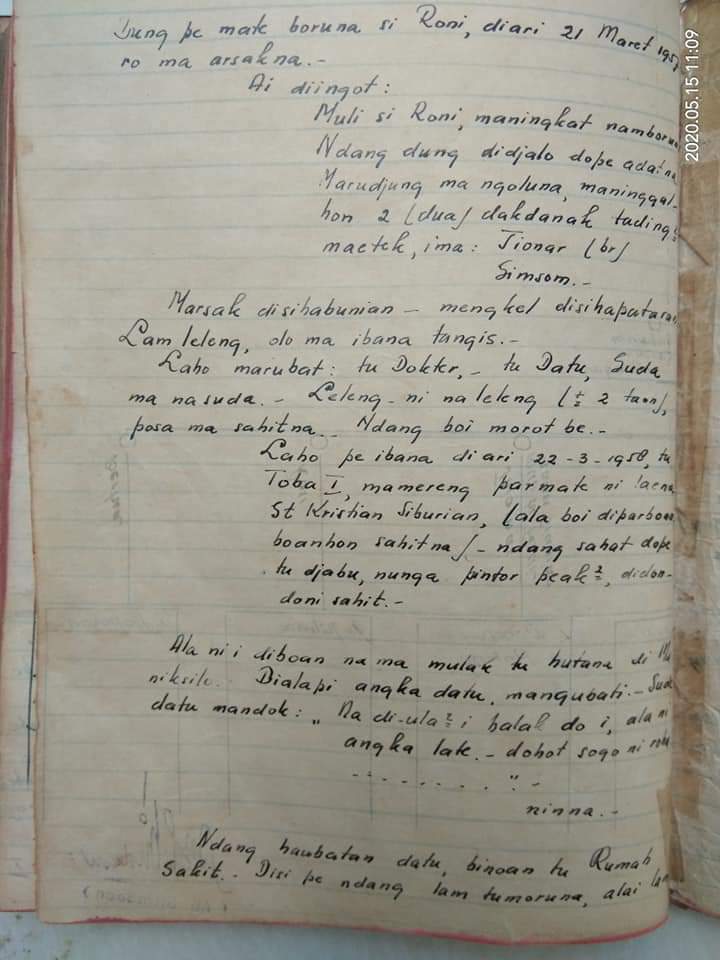 Dung pe mate boruna si Roni, diari 21 Maret 195
ro ma arsakna.-
Ai diingot:
Muli si Roni, maningkat namboru
Ndang dung didjalo dope adatna
Marudjung ma ngoluna, maninggal-
hon 2 (dua) dakdanak tading2
maetek, ima: Tionar (br)
Simsom.-
Marsak disihabunian - mengkel disihapataran
Lam leleng, olo ma ibana tangis.-
Laho marubat: tu Dokter,- tu Datu, Suda
ma na suda.- Leleng-ni na leleng (± 2 taon),
posa ma sahitna.- Ndang boi morot be.-
Laho pe ibana diari 22-3-1958, tu
Toba I, mamereng parmate ni laena
St Kristian Siburian, (ala boi diparboan
boanhon sahitna)- ndang sahat dope
tu djabu, nunga pintor peak2, didon-
doni sahit.-
Ala ni i diboan na ma mulak tu hutana di Ma
niksilo. Dialapi angka datu, mangubati.- Suda
datu mandok: „Na di-ula2 i halak do i, ala ni
angka late.- dohot sogo ni roha
- - . . . . . . . " -
ninna.-
Ndang haubatan datu, binoan tu Rumah
Sakit.- Disi pe ndang lam tumoruna, alai lam
2020.05.15 11:09